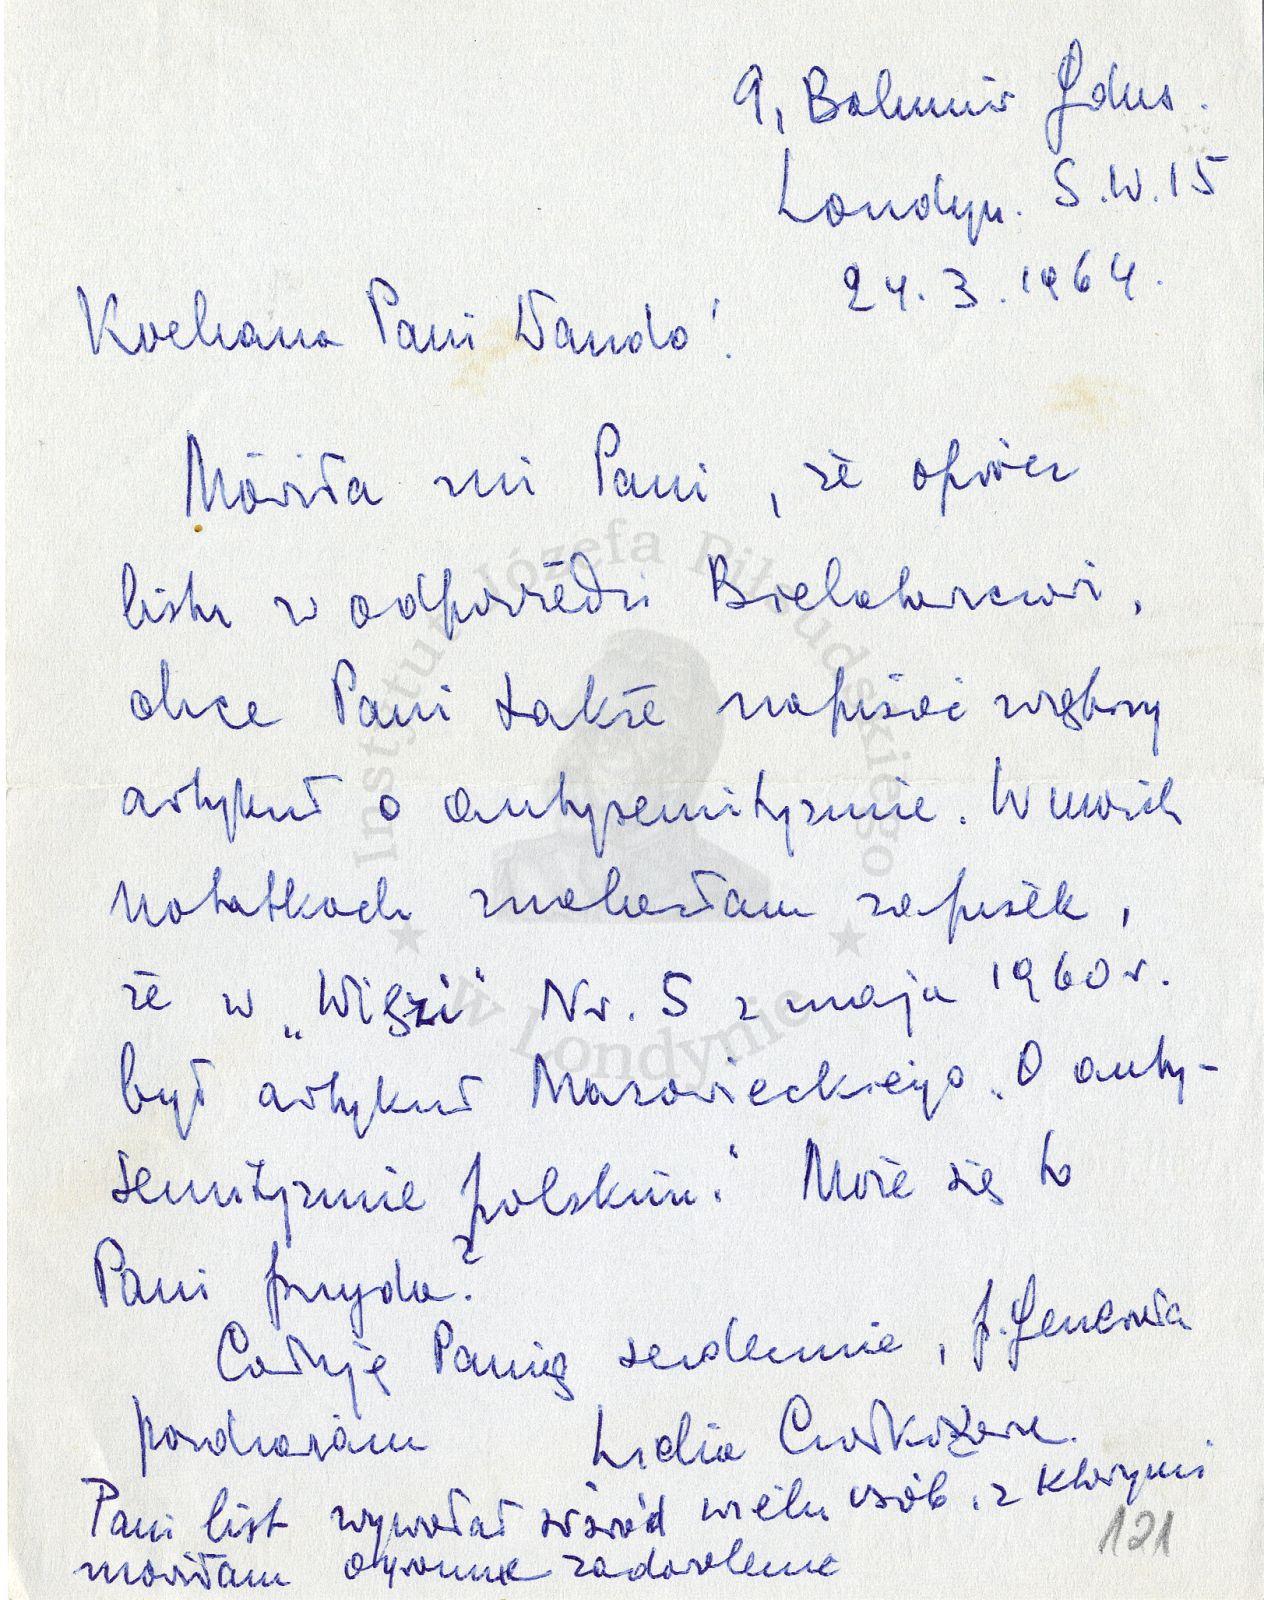 9, Balmuir Gdns.
Londyn. S.W.15
24.3.1964.
Kochana Pani Wando!
Mówiła mi Pani, że oprócz
listu w odpowiedzi Bielatowiczowi,
chce Pani także napisać większy
artykuł o antysemityzmie. W moich
notatkach znalazłam zapisek,
że w „Więzi" Nr. 5 z maja 1960 r.
był artykuł Mazowieckiego „O anty-
semityzmie polskim." Może się to
Pani przyda?
Całuję Panią serdecznie, p.
pozdrawiam Lidia Ciołkoszowa.
Pani list wywołał wśród wielu osób, z którymi
mówiłam ogromne zadowolenie
121
Instytut Józefa Piłsudskiego
w Londynie